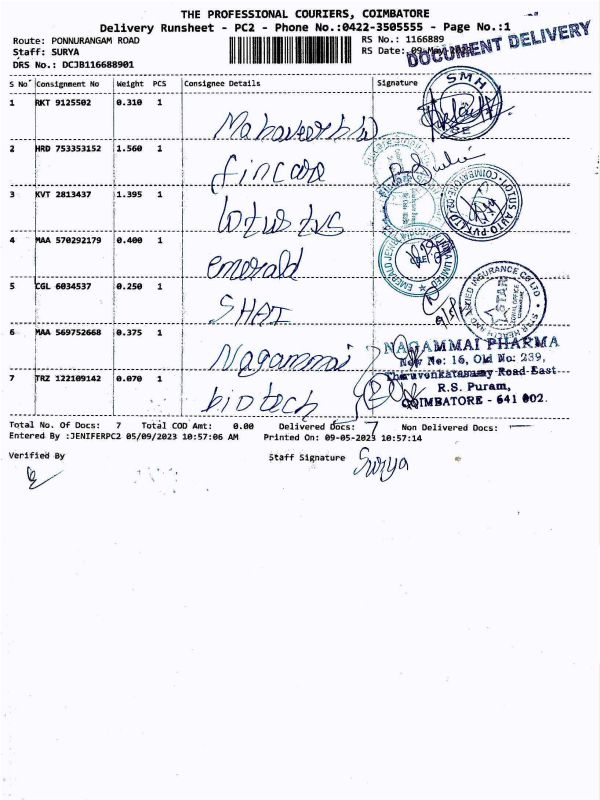 THE PROFESSIONAL COURIERS, COIMBATORE
Delivery Runsheet - PC2 - Phone No.:0422-3505555 - Page No.:1
Route: PONNURANGAM ROAD
Staff: SURYA
DRS No.: DCJB116688901
RS No.: 1166889
RS Date: 09-May-2023
DOCUMENT DELIVERY
S No Consignment No Weight PCS Consignee Details Signature
1 RKT 9125502 0.310 1
SMH
2 HRD 753353152 1.560 1 fincare
3 KVT 2813437 1.395 1 lotus tvs
LOTUS AUTO PVT LTD
4 MAA 570292179 0.400 1 emerald
5 CGL 6034537 0.250 1 SHAI
STAR HEALTH AND ALLIED INSURANCE CO LTD
STAR
6 MAA 569752668 0.375 1 Nagammai
NAGAMMAI PHARMA
New No: 16, Old No: 239,
Theruvenkatasamy Road East
R.S. Puram,
COIMBATORE - 641 002.
7 TRZ 122109142 0.070 1 biotech
Total No. Of Docs: 7 Total COD Amt: 0.00 Delivered Docs: 7 Non Delivered Docs: —
Entered By :JENIFERPC2 05/09/2023 10:57:06 AM Printed On: 09-05-2023 10:57:14
Verified By
Staff Signature Surya